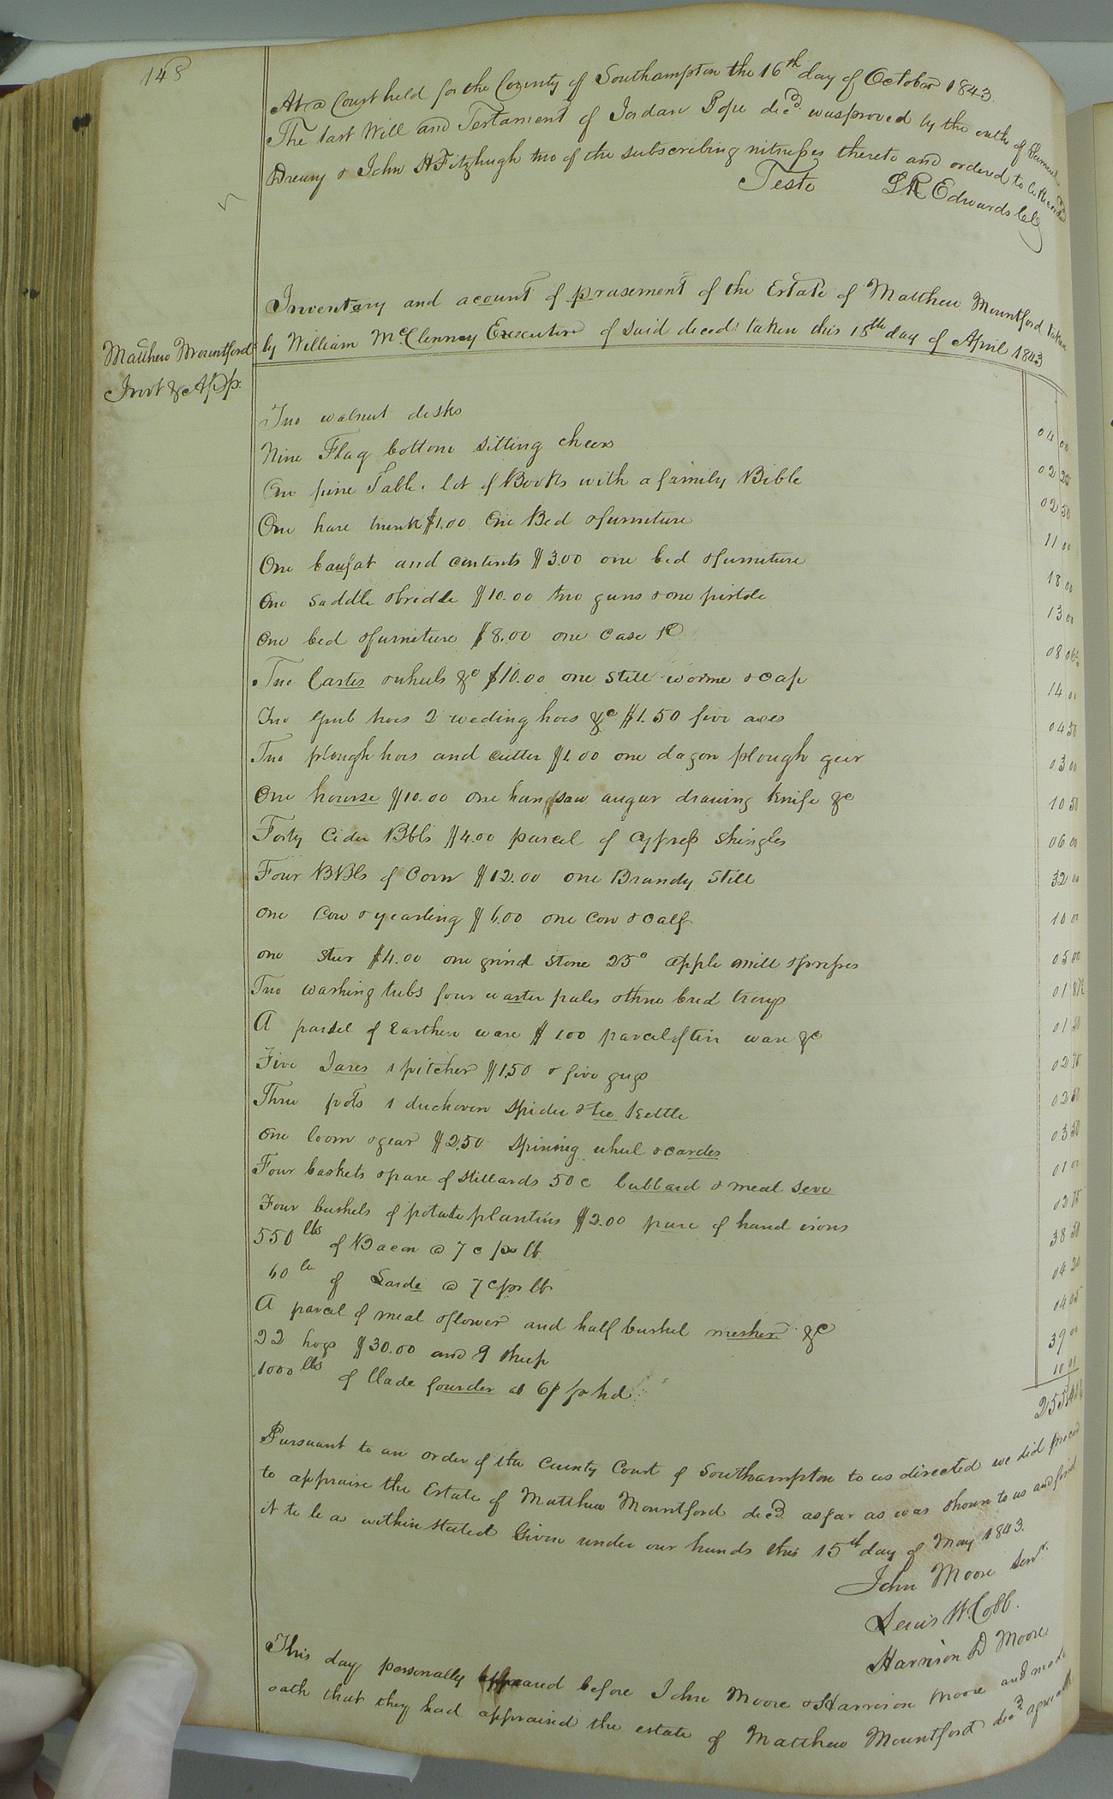 148
At a Court held for the County of Southampton the 16th day of October 1843
The last Will and Testament of Jordan Pope decd. was proved by the oath of
Drewry & John H Fitzhugh two of the subscribing witnesses thereto and ordered to be
Teste LR Edwards Clk
Matthew Mountford
Invt & App.
Inventory and acount of prasement of the Estate of Matthew Mountford taken
by William McClenney Executor of said deced taken this 15th day of April 1843
Two walnut desks 04 00
Nine Flag bottom sitting cheers 02 25
One pine Table. lot of Books with a family Bible 02 50
One hare trunk $1.00 One Bed & furniture 11 00
One baufat and contents $3.00 one bed & furniture 18 00
One saddle & bridle $10.00 two guns & one pistole 13 00
One bed & furniture $8.00 one case 08
Two Cartes & wheels &c $10.00 one still worme & cap 14 00
Two grub hoes 2 weding hoes &c $1.50 five axes 04 50
Two plough hoes and cutter $1.00 one dagon plough geer 03 00
One hourse $10.00 one handsaw augur drawing knife &c 10 50
Forty Cider Bbls $4.00 parcel of Cypress shingles 06 00
Four BBls of Corn $12.00 one Brandy Still 32 00
one Cow & yearling $6.00 one Cow & calf 10 00
one steer $4.00 one grind stone 25c apple mill & presses 05 00
Two washing tubs four warter pales & three bred trays 01
A parsel of Earthen ware $1.00 parcel of tin ware &c 01 50
Five Jares 1 pitcher $1.50 & five gugs 02 75
Three pots 1 duchoven spider & tee kettle 02 50
One loom & gear $2.50 spinning wheel & cardes 03 50
Four baskets & pare of stillards 50c Cubbard & meal seve 01 00
Four bushels of potatoe plantins $2.00 pare of hand irons 02 75
550 lbs of Bacon @ 7c per lb 38 50
60 lb of Larde @ 7c per lb 04 20
A parcel of meal & flower and half bushel mesher &c 04 05
22 hogs $30.00 and 9 sheep 39 00
1000 lbs of blade fourder at 6/ per hd 10 00
Pursuant to an order of the County Court of Southampton to us directed we did proceed
to appraise the Estate of Matthew Mountford decd. as far as was shown to us and find
it to be as within stated Given under our hands this 15th day of May 1843.
John Moore Senr.
Lewis W Cobb.
Harrison D Moore
This day personally appeared before John Moore & Harrison Moore and made
oath that they had appraised the estate of Matthew Mountford decd. agreeable